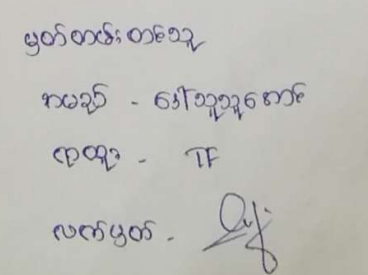 မှတ်တမ်းတင်သူ
အမည် - ဒေါ်သူသူအောင်
ရာထူး - TF
လက်မှတ် -